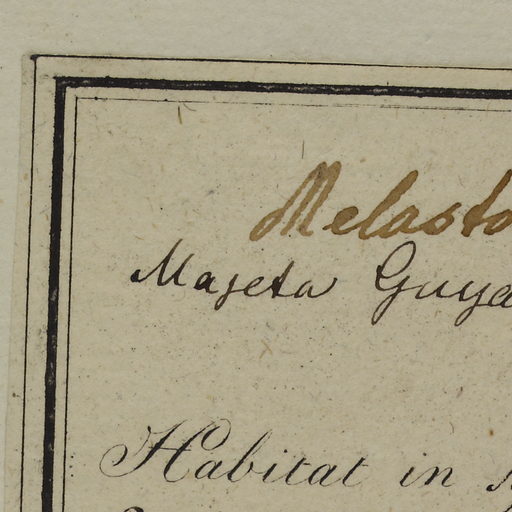 Melasto
Majeta Guya
Habitat in